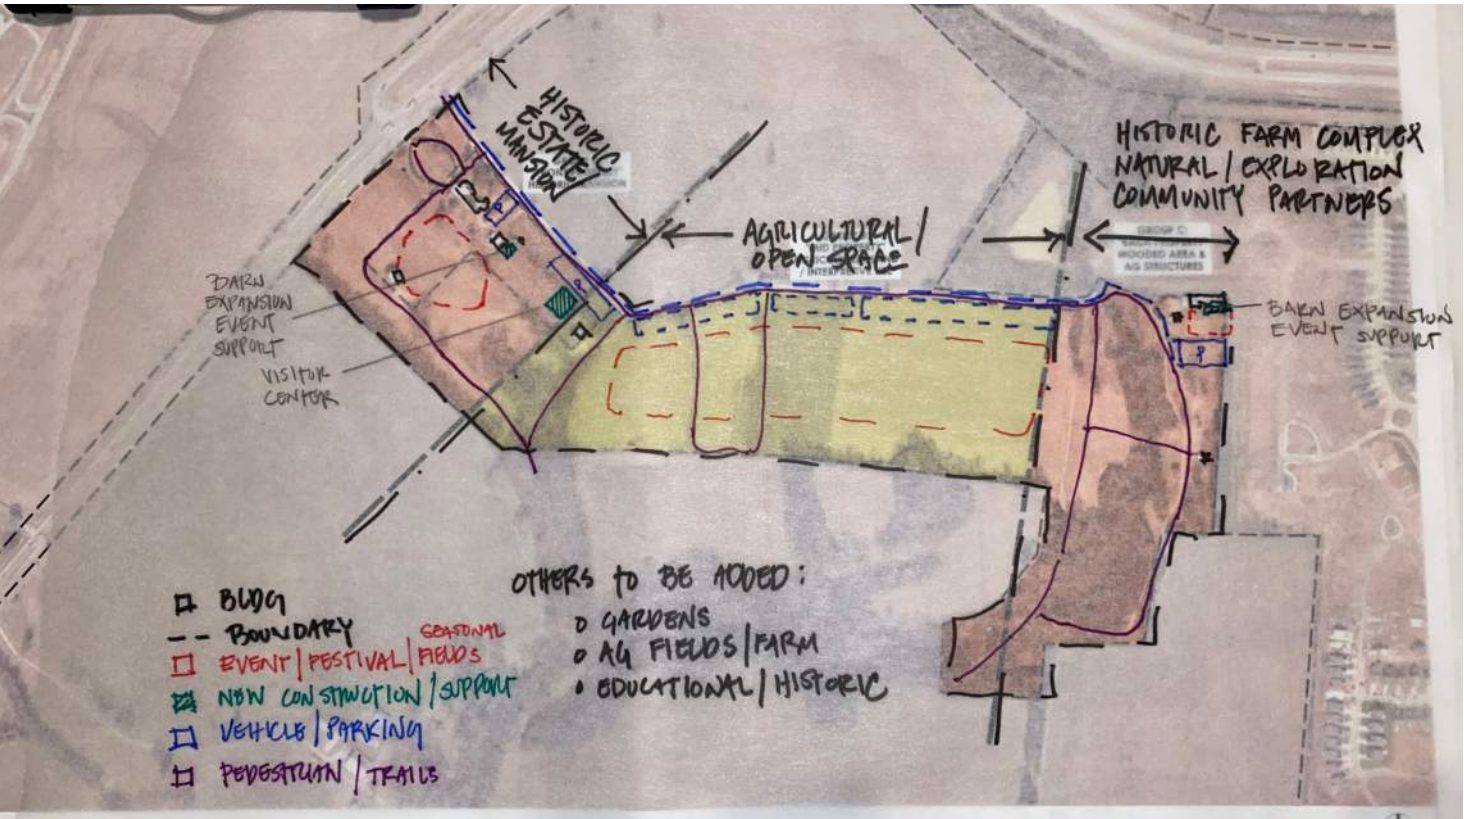 HISTORIC
ESTATE/
MANSION
AGRICULTURAL/
OPEN SPACE
HISTORIC FARM COMPLEX
NATURAL/EXPLORATION
COMMUNITY PARTNERS
GROUP C:
WOODED AREA &
AG STRUCTURES
BARN
EXPANSION
EVENT
SUPPORT
VISITOR
CENTER
P
P
P
BARN EXPANSION
EVENT SUPPORT
BLDG
BOUNDARY
SEASONAL
EVENT/FESTIVAL/FIELDS
NEW CONSTRUCTION/SUPPORT
VEHICLE/PARKING
PEDESTRIAN/TRAILS
OTHERS TO BE ADDED:
o GARDENS
o AG FIELDS/FARM
• EDUCATIONAL/HISTORIC